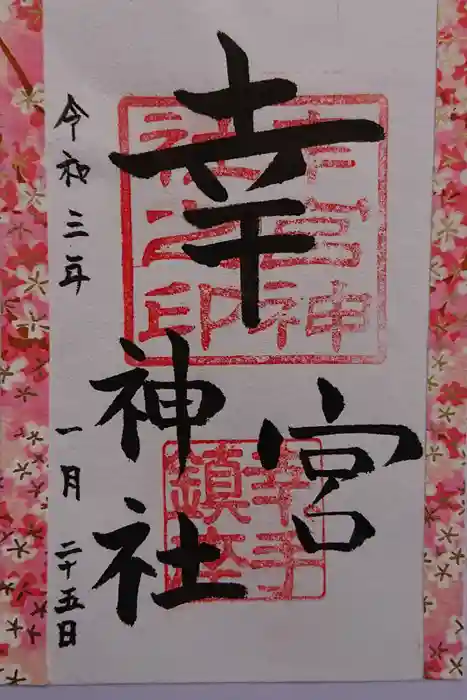 幸
宮
神社
令和三年
一月
二十五日
幸宮神
社之印
幸手
鎮座